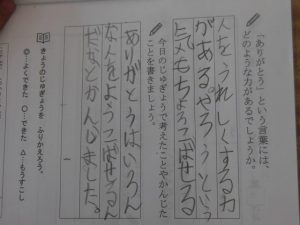 「ありがとう」という言葉には、
どのような力があるでしょうか。
人をうれしくする力
があるやろうという
気もちよろこばせる
今日のじゅぎょうで考えたことやかんじた
ことを書きましょう。
ありがとうはいろん
な人をよろこばせるん
だなとかんじました。
きょうのじゅぎょうを ふりかえろう。
◎…よくできた ○…できた △…もうすこし